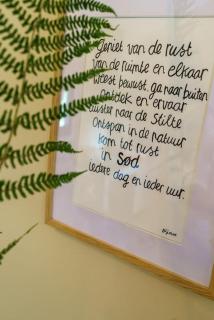 Geniet van de rust
van de ruimte en elkaar
Weest bewust, ga naar buiten
Ontdek en ervaar
Luister naar de Stilte
Ontspan in de natuur
Kom tot rust
in SØd
iedere dag en ieder uur.